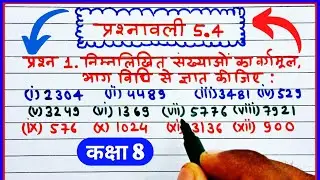 प्रश्नावली 5.4
प्रश्न 1. निम्नलिखित संख्याओं का वर्गमूल,
भाग विधि से ज्ञात कीजिए :
(i) 2304 (ii) 4489 (iii) 3481 (iv) 529
(v) 3249 (vi) 1369 (vii) 5776 (viii) 7921
(ix) 576 (x) 1024 (xi) 3136 (xii) 900
कक्षा 8